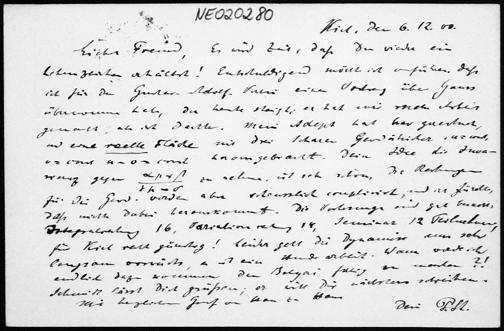 NE020280
Kiel, den 6. 12. 00.
Lieber Freund, Es wird Zeit, daß Du wieder ein
Lebenszeichen erhältst! Entschuldigend möchte ich anführen, daß
ich für den Gustav-Adolf-Verein einen Vortrag über Gauss
übernommen habe, der heute steigt; er hat mir mehr Arbeit
gemacht, als ich dachte. Mein Adept hat hier
und eine reelle Fläche mit drei Scharen
herausgebracht. Deine Idee die
gegen αμ+β / γμ−σ zu nehmen, ist sehr schön, die Rechnungen
für die werden aber schrecklich complicirt, und ich fürchte,
daß nicht dabei herauskommt. Die Vorlesungen sind gut besucht,
Integralrechnung 16, Variationsrechnung 14, Seminar 12 Teilnehmer,
für Kiel recht günstig! Leider geht die Dynamik nur sehr
langsam vorwärts, es ist eine Hundearbeit. Wann werde ich
endlich dazu kommen den Bolyai fertig zu machen?!
läßt Dich grüßen; er will Dir nächstens schreiben.
Mit herzlichem Gruß von Haus zu Haus
Dein P. St.